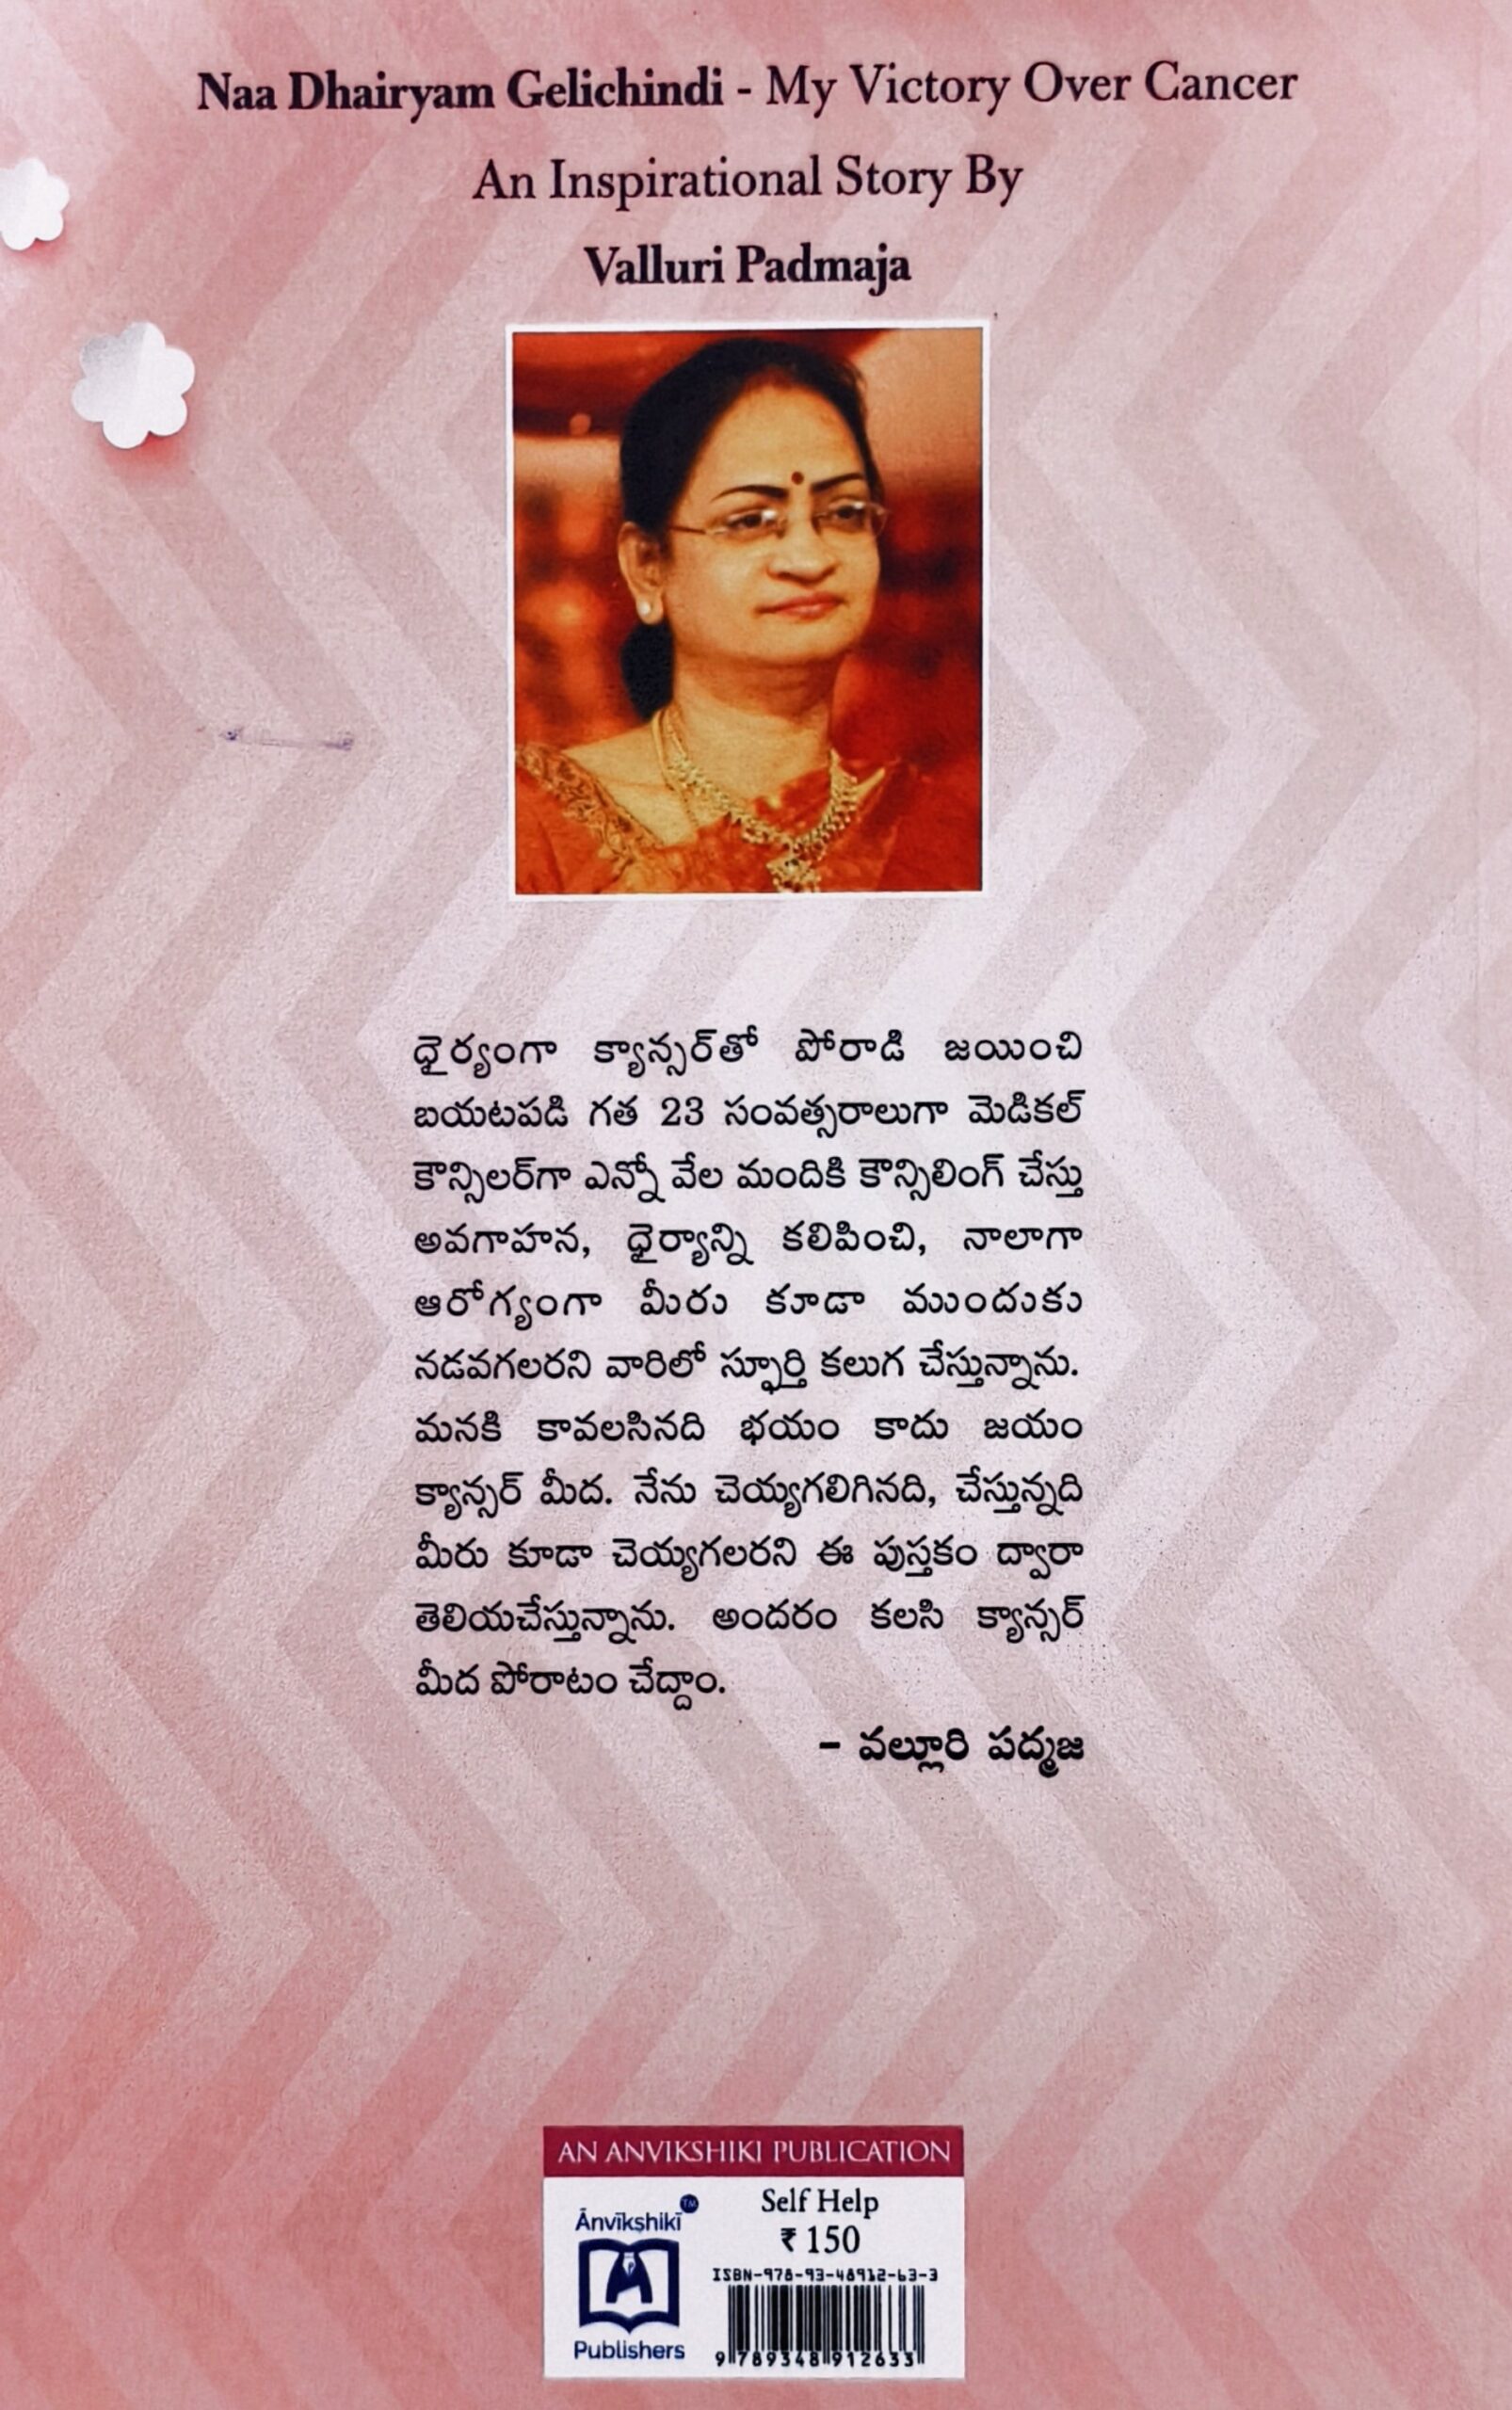 Naa Dhairyam Gelichindi - My Victory Over Cancer
An Inspirational Story By
Valluri Padmaja
ధైర్యంగా క్యాన్సర్‌తో పోరాడి జయించి
బయటపడి గత 23 సంవత్సరాలుగా మెడికల్
కౌన్సిలర్‌గా ఎన్నో వేల మందికి కౌన్సిలింగ్ చేస్తు
అవగాహన, ధైర్యాన్ని కలిపించి, నాలాగా
ఆరోగ్యంగా మీరు కూడా ముందుకు
నడవగలరని వారిలో స్ఫూర్తి కలుగ చేస్తున్నాను.
మనకి కావలసినది భయం కాదు జయం
క్యాన్సర్ మీద. నేను చెయ్యగలిగినది, చేస్తున్నది
మీరు కూడా చెయ్యగలరని ఈ పుస్తకం ద్వారా
తెలియచేస్తున్నాను. అందరం కలసి క్యాన్సర్
మీద పోరాటం చేద్దాం.
– వల్లూరి పద్మజ
AN ANVIKSHIKI PUBLICATION
Ānvīkshikī TM
Publishers
Self Help
₹ 150
ISBN-978-93-48912-63-3
9 789348 912633